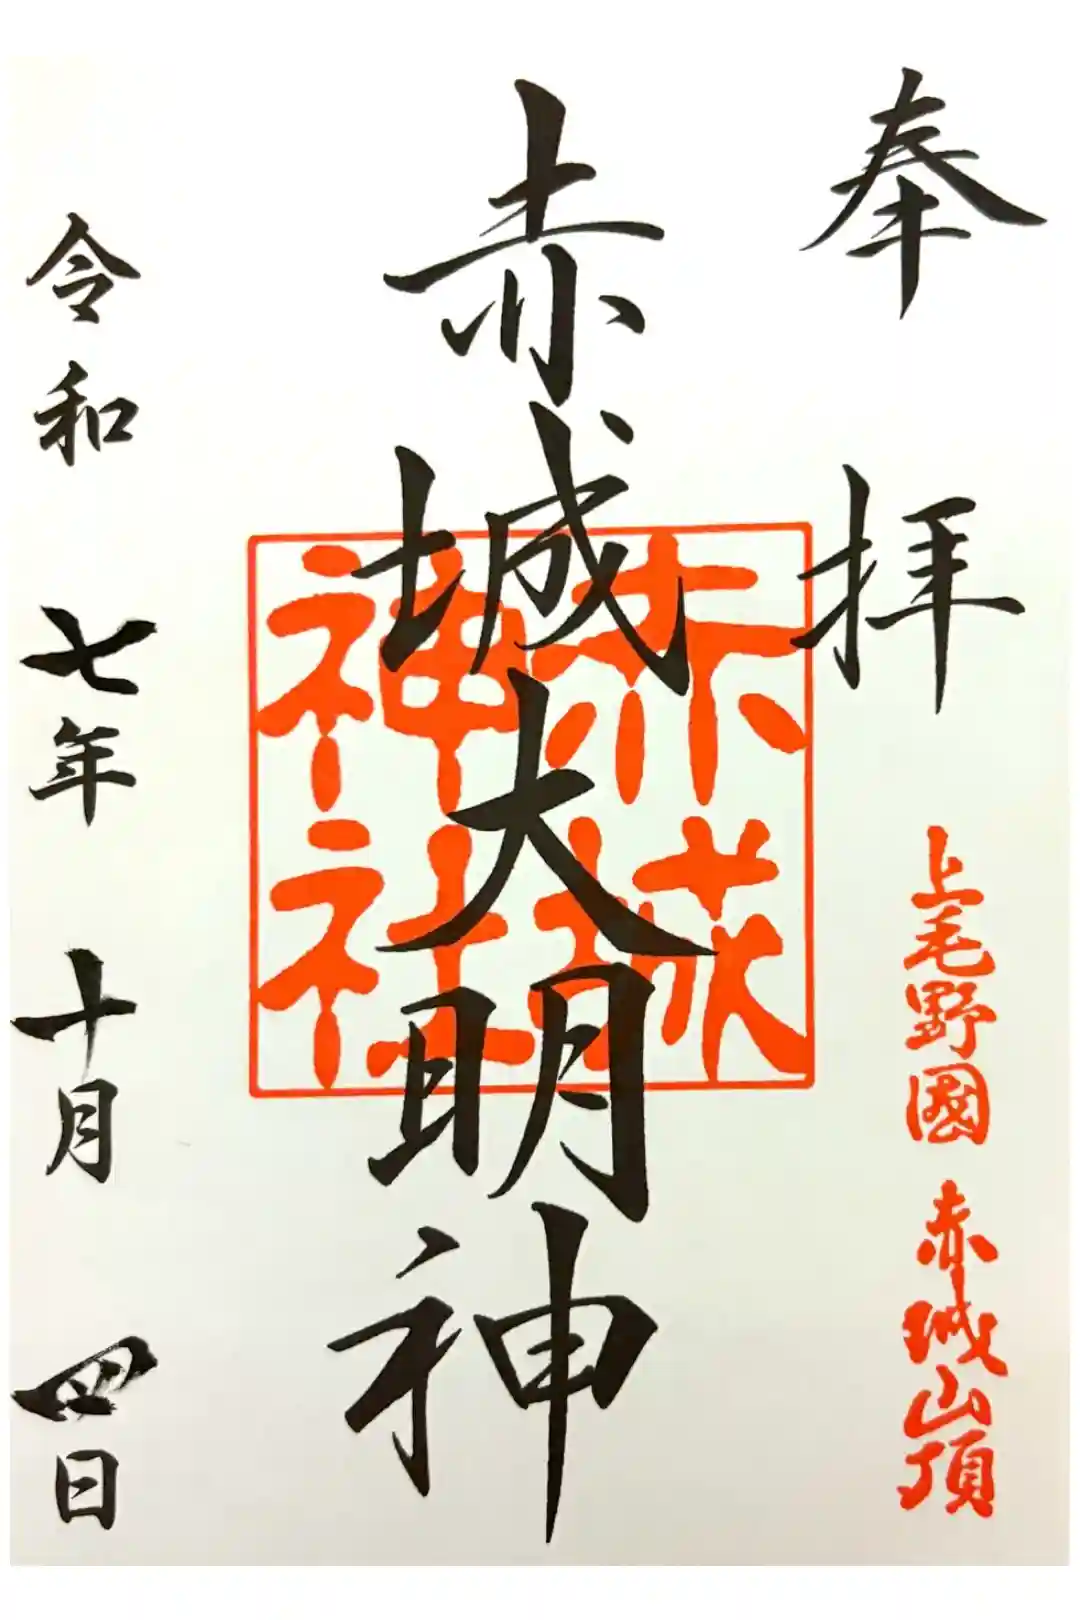 奉拝
上毛野國 赤城山頂
赤城大明神
赤城
神社
令和 七年 十月 四日